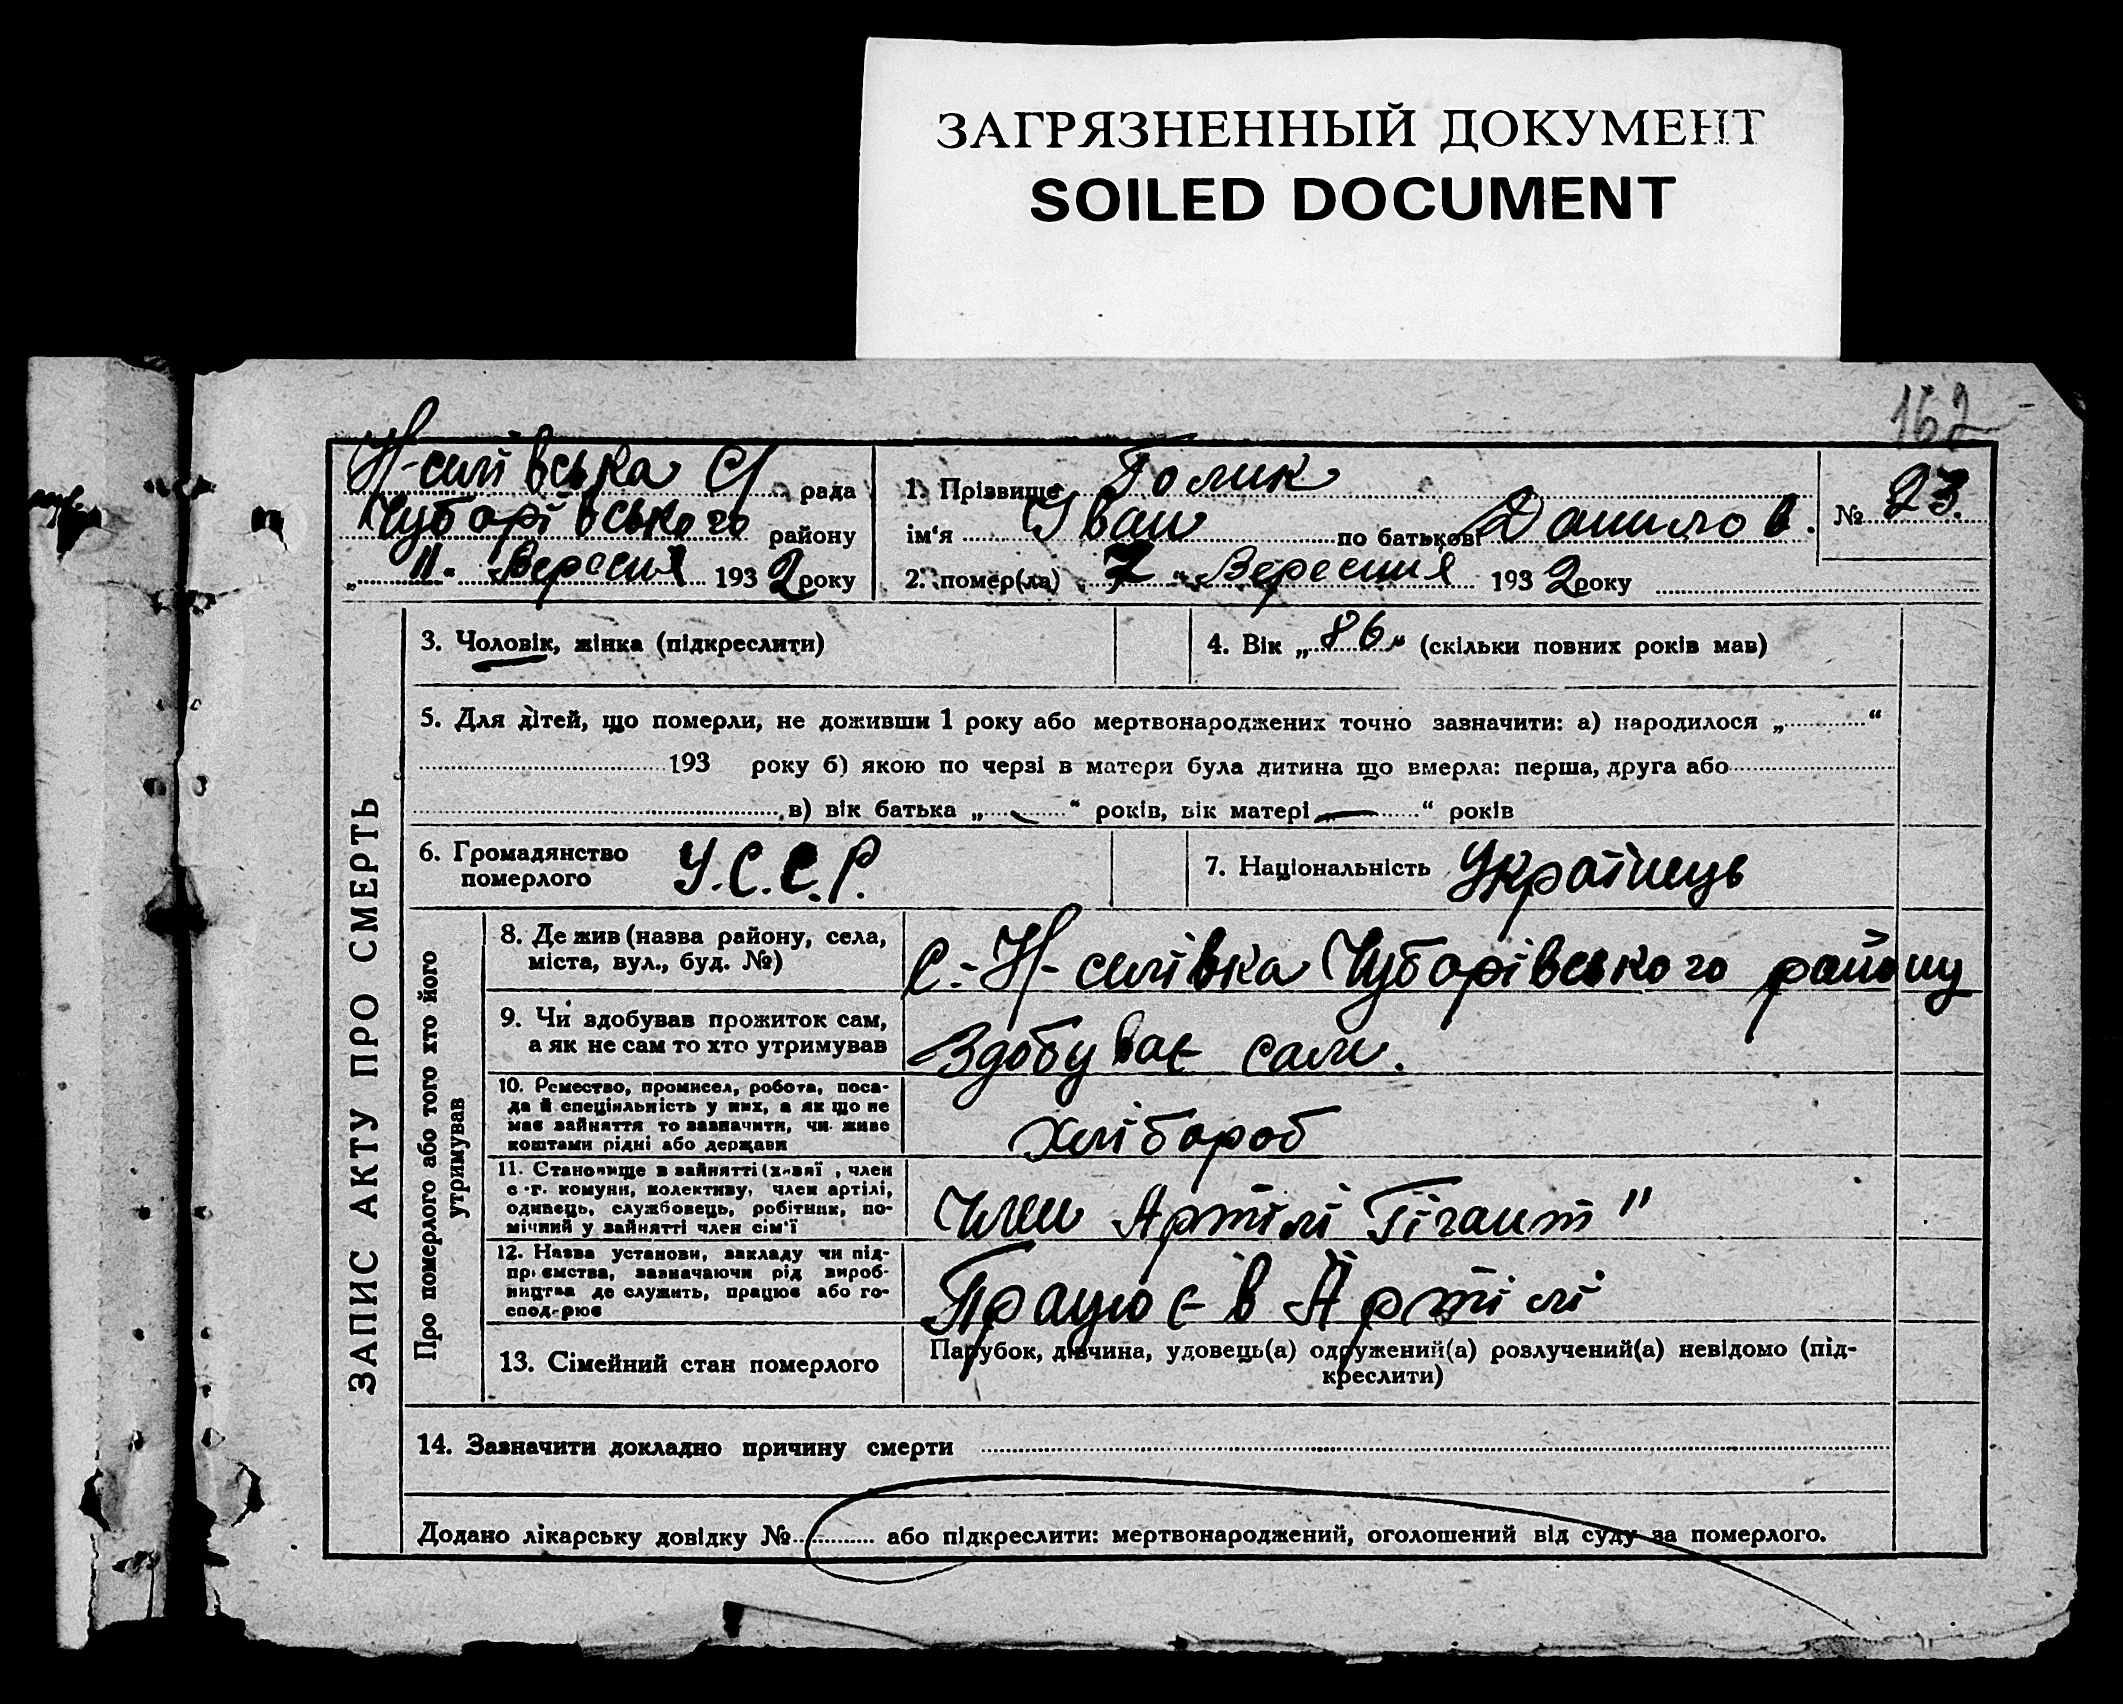 ЗАГРЯЗНЕННЫЙ ДОКУМЕНТ
SOILED DOCUMENT
162
Н-силівська С/ рада
Чубарівського району
„ 11 “ Вересня 1932 року
1. Прізвище Голик
ім‘я Іван по батькові Данилов.
2. помер(ла) 7 “ Вересня 1932 року
№ 23.
ЗАПИС АКТУ ПРО СМЕРТЬ
3. Чоловік, жінка (підкреслити)
4. Вік „ 86 “ (скільки повних років мав)
5. Для дітей, що померли, не доживши 1 року або мертвонароджених точно зазначити: а) народилося „ “
193 року б) якою по черзі в матери була дитина що вмерла: перша, друга або
в) вік батька „ “ років, вік матері “ років
6. Громадянство
померлого
У.С.С.Р.
7. Національність Українець
Про померлого або того хто його
утримував
8. Де жив (назва району, села,
міста, вул., буд. №)
С.-Н-силівка Чубарівського району
9. Чи здобував прожиток сам,
а як не сам то хто утримував
Здобуває сам.
10. Ремество, промисел, робота, поса-
да й спеціяльність у них, а як що не
має зайняття то зазначити, чи живе
коштами рідні або держави
Хлібороб
11. Становище в зайнятті (хазяї , член
с.-г. комуни, колективу, член артілі,
одинець, службовець, робітник, по-
мічний у зайнятті член сім'ї
Член Артілі Гігант"
12. Назва установи, закладу чи під-
приємства, зазначаючи рід вироб-
ництва де служить, працює або го-
сподарює
Працює в Артілі
13. Сімейний стан померлого
Парубок, дівчина, удовець(а) одружений(а) розлучений(а) невідомо (під-
креслити)
14. Зазначити докладно причину смерти
Додано лікарську довідку № або підкреслити: мертвонароджений, оголошений від суду за померлого.